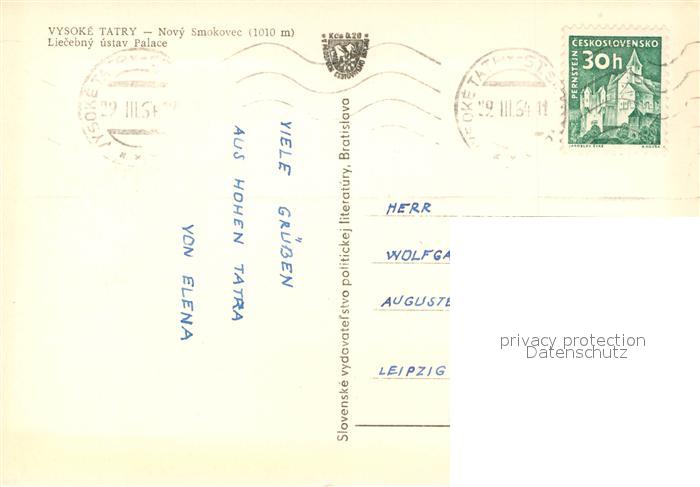 VYSOKÉ TATRY — Nový Smokovec (1010 m)
Liečebný ústav Palace
Kčs 0.20
VYSOKÉ TATRY
29 III.64
VYSOKÉ TATRY
29 III.64 11
ČESKOSLOVENSKO
30h
PERNŠTEJN
VIELE GRÜßEN
AUS HOHEN TATRA
VON ELENA
Slovenské vydavateľstvo politickej literatúry, Bratislava
HERR
WOLFGA
AUGUSTE
LEIPZIG
privacy protection
Datenschutz